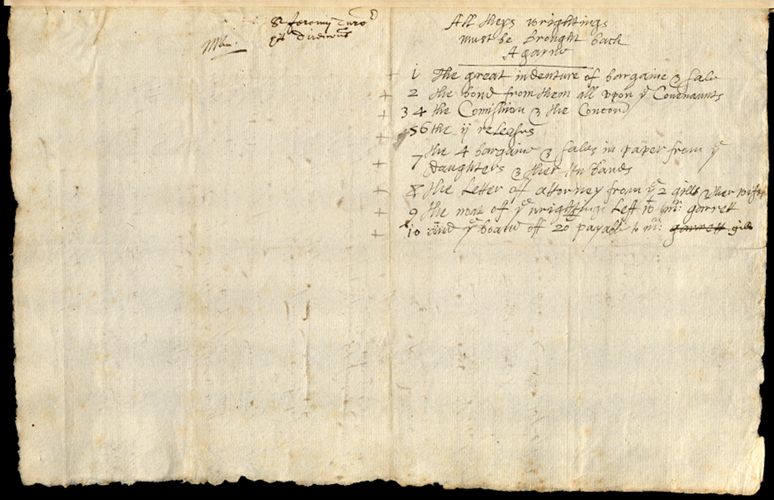 Sr Jeromy
All theys wrightings
must be brought back
Agarne
1 The great indenture of bargaine & sale
2 the bond from them all upon ye Covenaunts
3 4 the Comission & the Concord
5 6 the ij releases
7 the 4 bargaine & sales in paper from ye
daughters & ther Husbands
8 the Letter of attorney from ye 2 gills & ther wifes
9 the noat of ye wrightings Left to mr: garret
10 And ye board off 20 payable to mr: garrett gills